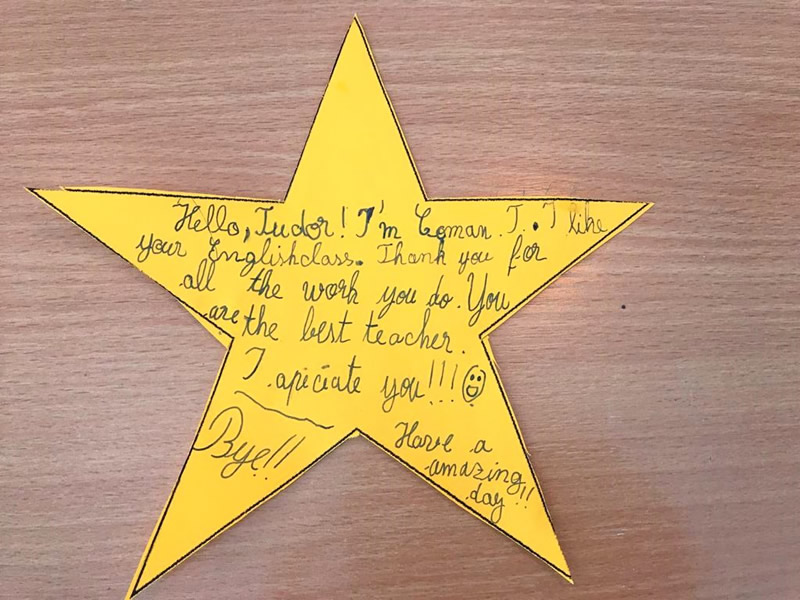 Hello, Tudor! I'm Coman T. I like
your Englishclass. Thank you for
all the work you do. You
are the best teacher.
I apiciate you!!!
Bye!!
Have a
amazing
day!!